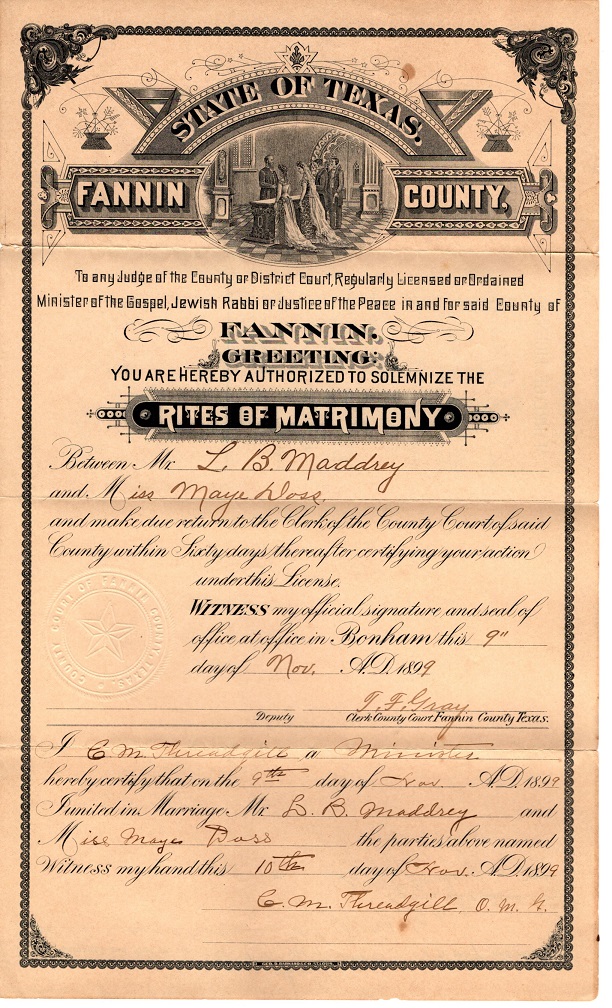 STATE OF TEXAS,
FANNIN COUNTY,
To any Judge of the County or District Court, Regularly Licensed or Ordained
Minister of the Gospel, Jewish Rabbi or Justice of the Peace in and for said County of
FANNIN.
GREETING:
YOU ARE HEREBY AUTHORIZED TO SOLEMNIZE THE
RITES OF MATRIMONY
Between Mr. L. B. Maddrey
and Miss Maye Doss
and make due return to the Clerk of the County Court of said
County within Sixty days thereafter certifying your action
under this License.
WITNESS my official signature and seal of
office at office in Bonham this 9"
day of Nov. A.D. 1899
T. F. Gray
Deputy Clerk County Court Fannin County Texas.
COUNTY COURT OF FANNIN COUNTY TEXAS
I C. M. Threadgill a Minister
hereby certify that on the 9th day of Nov. A.D. 1899
I united in Marriage Mr. L. B. Maddrey and
Miss Maye Doss the parties above named
Witness my hand this 10th day of Nov. A.D. 1899
C. M. Threadgill O. M. G.